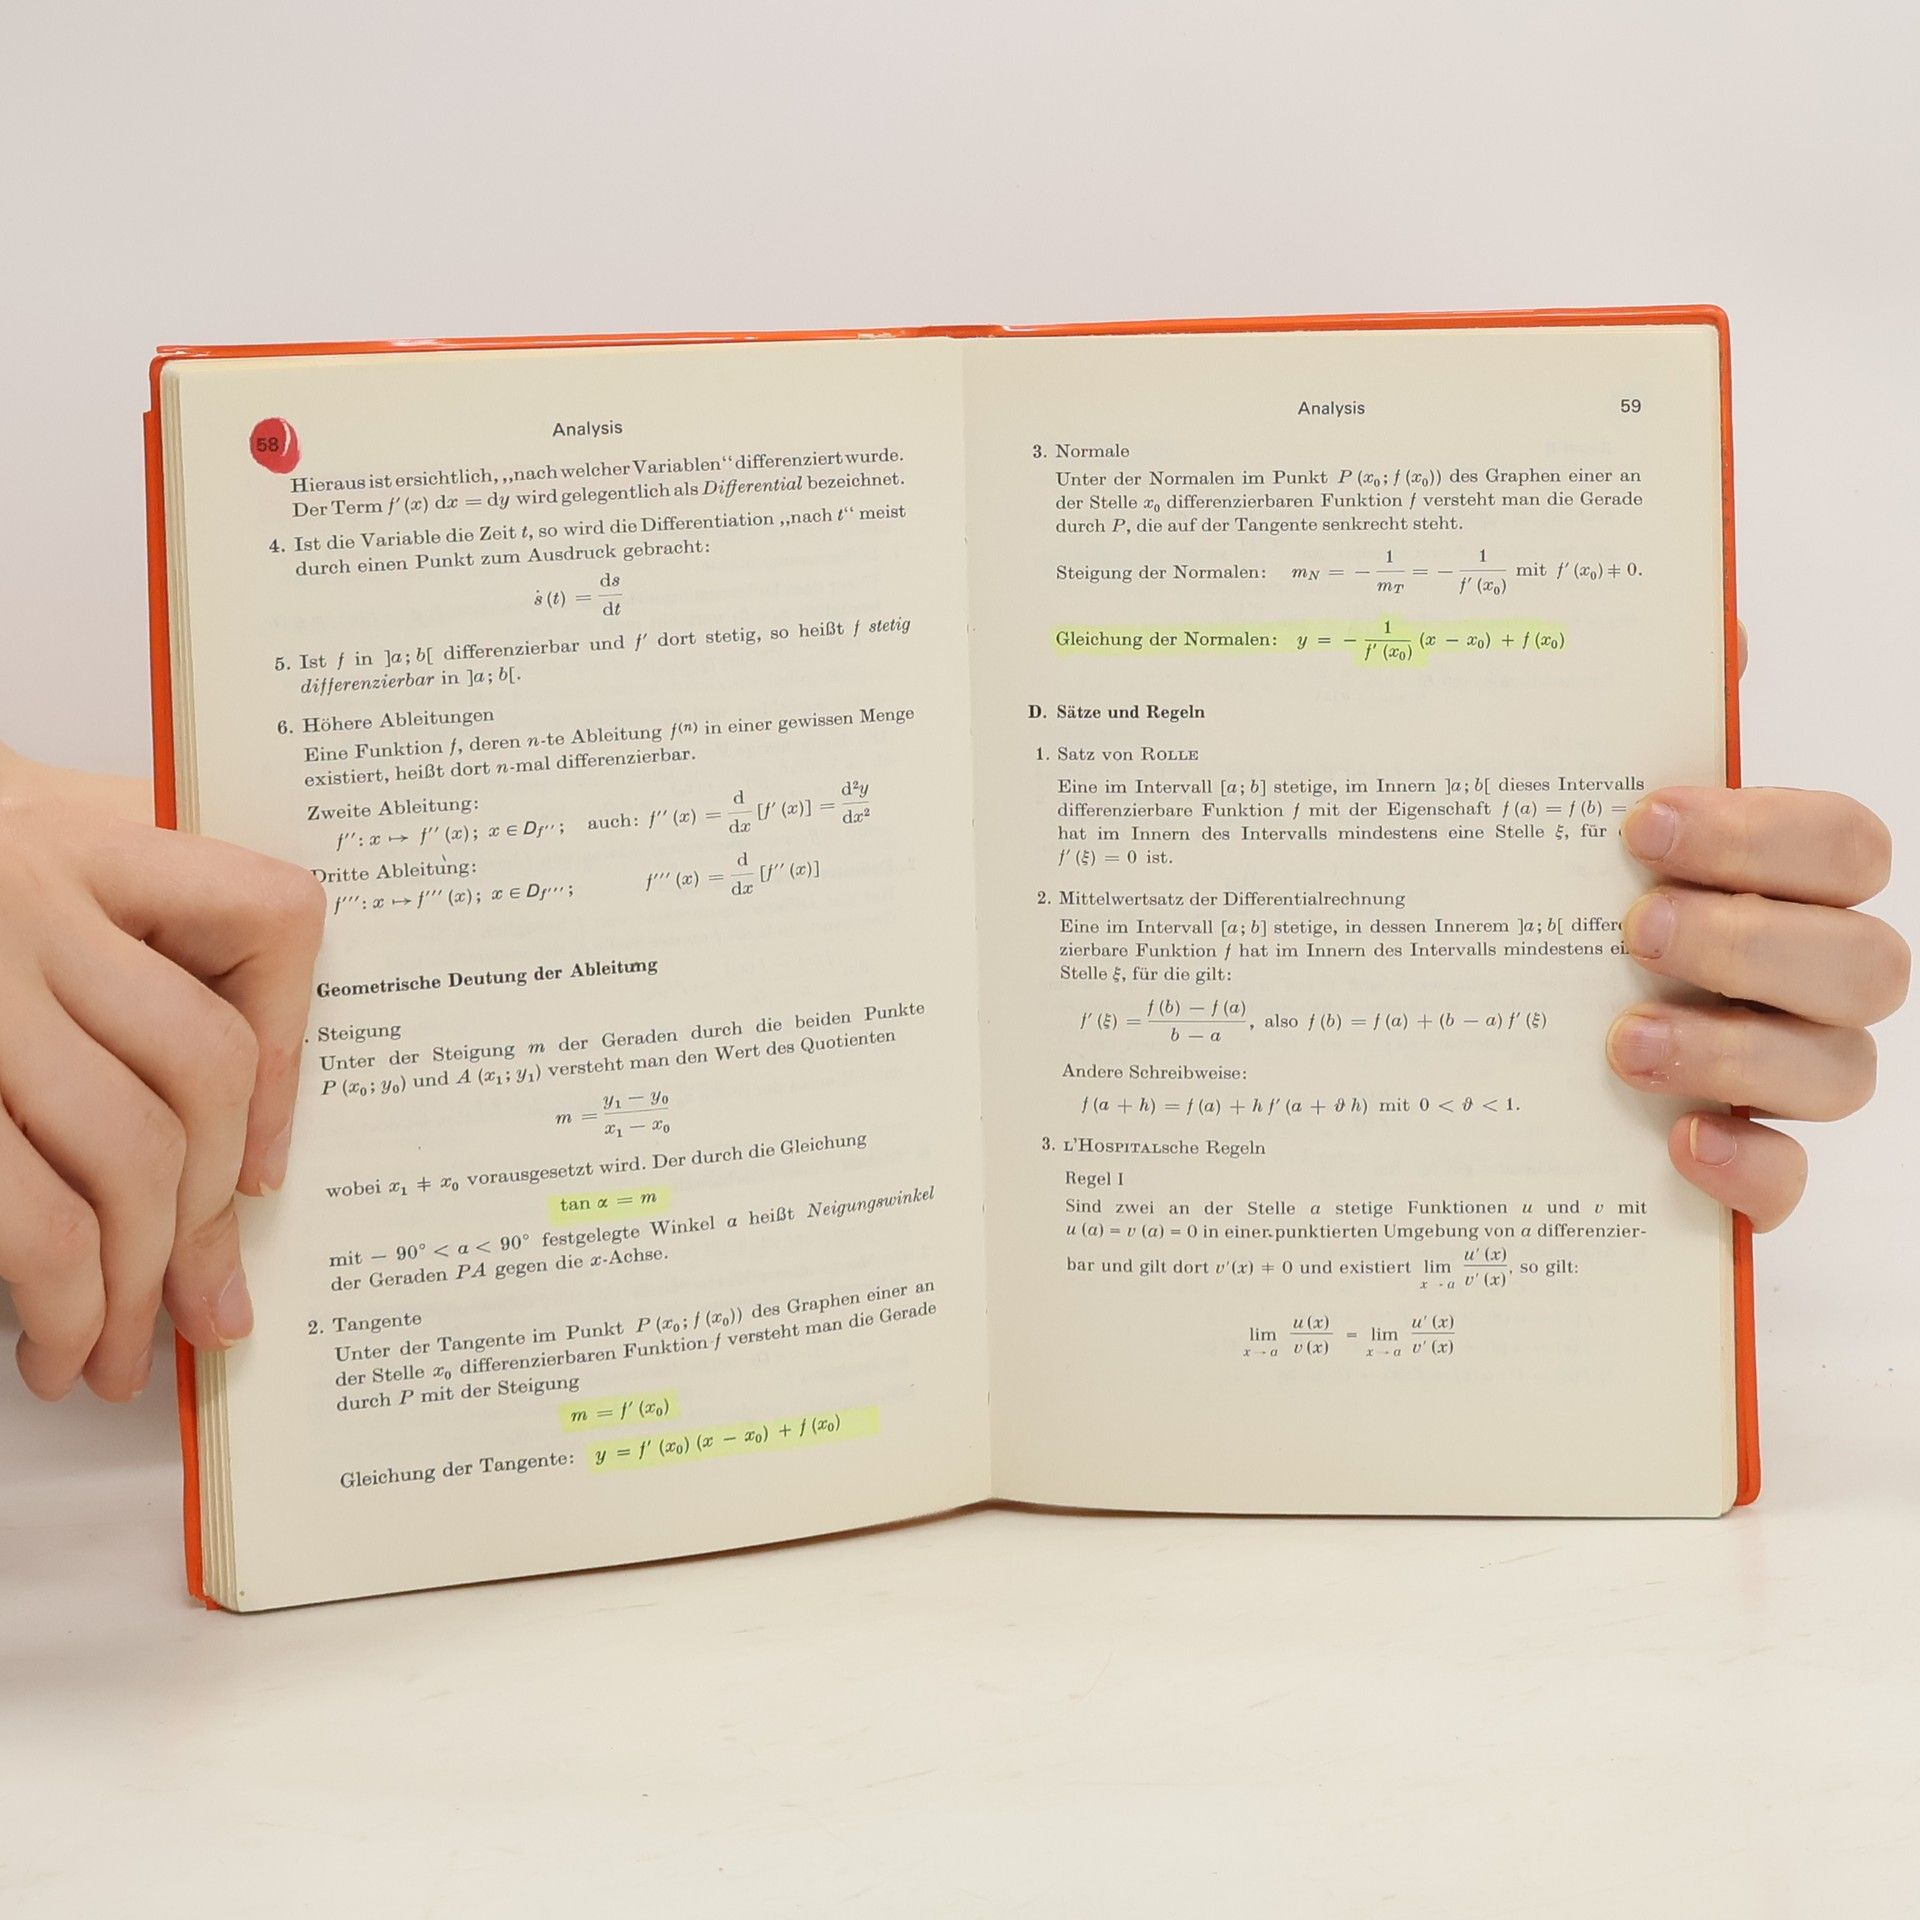 58
Analysis
Hieraus ist ersichtlich, „nach welcher Variablen“ differenziert wurde.
Der Term f′ (x) dx = dy wird gelegentlich als Differential bezeichnet.
4. Ist die Variable die Zeit t, so wird die Differentiation „nach t“ meist
durch einen Punkt zum Ausdruck gebracht:
ṡ (t) = ds/dt
5. Ist f in ]a; b[ differenzierbar und f′ dort stetig, so heißt f stetig
differenzierbar in ]a; b[.
6. Höhere Ableitungen
Eine Funktion f, deren n-te Ableitung f⁽ⁿ⁾ in einer gewissen Menge
existiert, heißt dort n-mal differenzierbar.
Zweite Ableitung:
f′′: x ↦ f′′ (x); x ∈ D_f′′; auch: f′′ (x) = d/dx [f′ (x)] = d²y/dx²
Dritte Ableitung:
f′′′: x ↦ f′′′ (x); x ∈ D_f′′′; f′′′ (x) = d/dx [f′′ (x)]
Geometrische Deutung der Ableitung
. Steigung
Unter der Steigung m der Geraden durch die beiden Punkte
P (x₀; y₀) und A (x₁; y₁) versteht man den Wert des Quotienten
m = (y₁ − y₀)/(x₁ − x₀)
wobei x₁ ≠ x₀ vorausgesetzt wird. Der durch die Gleichung
tan α = m
mit − 90° < α < 90° festgelegte Winkel α heißt Neigungswinkel
der Geraden PA gegen die x-Achse.
2. Tangente
Unter der Tangente im Punkt P (x₀; f (x₀)) des Graphen einer an
der Stelle x₀ differenzierbaren Funktion f versteht man die Gerade
durch P mit der Steigung
m = f′ (x₀)
Gleichung der Tangente: y = f′ (x₀) (x − x₀) + f (x₀)
Analysis
59
3. Normale
Unter der Normalen im Punkt P (x₀; f (x₀)) des Graphen einer an
der Stelle x₀ differenzierbaren Funktion f versteht man die Gerade
durch P, die auf der Tangente senkrecht steht.
Steigung der Normalen: m_N = − 1/m_T = − 1/f′ (x₀) mit f′ (x₀) ≠ 0.
Gleichung der Normalen: y = − 1/f′ (x₀) (x − x₀) + f (x₀)
D. Sätze und Regeln
1. Satz von ROLLE
Eine im Intervall [a; b] stetige, im Innern ]a; b[ dieses Intervalls
differenzierbare Funktion f mit der Eigenschaft f (a) = f (b) =
hat im Innern des Intervalls mindestens eine Stelle ξ, für
f′ (ξ) = 0 ist.
2. Mittelwertsatz der Differentialrechnung
Eine im Intervall [a; b] stetige, in dessen Innerem ]a; b[ differe
zierbare Funktion f hat im Innern des Intervalls mindestens ei
Stelle ξ, für die gilt:
f′ (ξ) = (f (b) − f (a))/(b − a), also f (b) = f (a) + (b − a) f′ (ξ)
Andere Schreibweise:
f (a + h) = f (a) + h f′ (a + ϑ h) mit 0 < ϑ < 1.
3. L'HOSPITALsche Regeln
Regel I
Sind zwei an der Stelle a stetige Funktionen u und v mit
u (a) = v (a) = 0 in einer punktierten Umgebung von a differenzier-
bar und gilt dort v′(x) ≠ 0 und existiert lim x→a u′ (x)/v′ (x), so gilt:
lim x→a u (x)/v (x) = lim x→a u′ (x)/v′ (x)